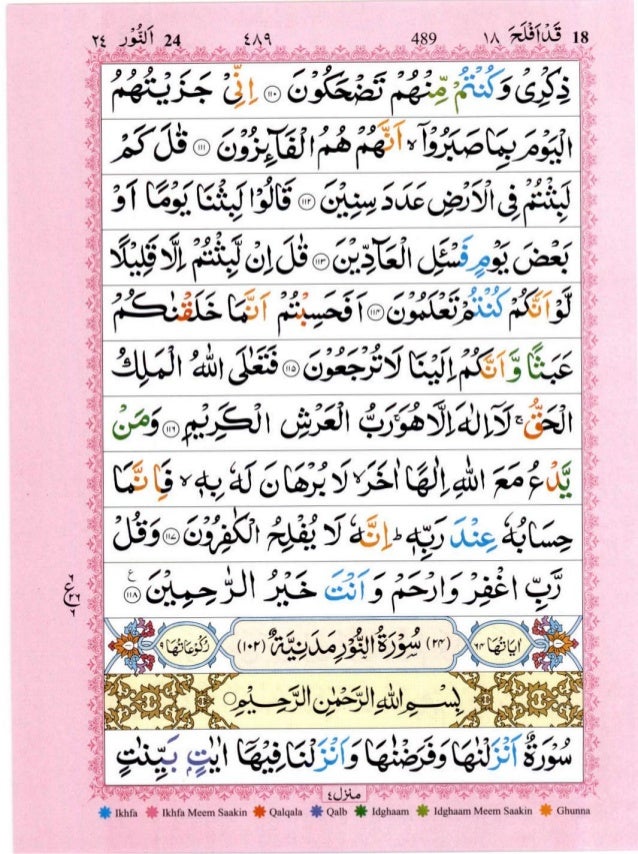 ٢٤ اَلنُّوْر 24 ٤٨٩ 489 قَدْ اَفْلَحَ ١٨ 18
ذِكْرِیْ وَكُنْتُمْ مِّنْهُمْ تَضْحَكُوْنَ ۝١١٠ اِنِّیْ جَزَیْتُهُمُ
الْیَوْمَ بِمَا صَبَرُوْۤا ۙ اَنَّهُمْ هُمُ الْفَآىِٕزُوْنَ ۝١١١ قٰلَ كَمْ
لَبِثْتُمْ فِی الْاَرْضِ عَدَدَ سِنِیْنَ ۝١١٢ قَالُوْا لَبِثْنَا یَوْمًا اَوْ
بَعْضَ یَوْمٍ فَسْـَٔلِ الْعَآدِّیْنَ ۝١١٣ قٰلَ اِنْ لَّبِثْتُمْ اِلَّا قَلِیْلًا
لَّوْ اَنَّكُمْ كُنْتُمْ تَعْلَمُوْنَ ۝١١٤ اَفَحَسِبْتُمْ اَنَّمَا خَلَقْنٰكُمْ
عَبَثًا وَّ اَنَّكُمْ اِلَیْنَا لَا تُرْجَعُوْنَ ۝١١٥ فَتَعٰلَی اللّٰهُ الْمَلِكُ
الْحَقُّ ۚ لَاۤ اِلٰهَ اِلَّا هُوَ ۚ رَبُّ الْعَرْشِ الْكَرِیْمِ ۝١١٦ وَ مَنْ
یَّدْعُ مَعَ اللّٰهِ اِلٰهًا اٰخَرَ ۙ لَا بُرْهَانَ لَهٗ بِهٖ ۙ فَاِنَّمَا
حِسَابُهٗ عِنْدَ رَبِّهٖ ؕ اِنَّهٗ لَا یُفْلِحُ الْكٰفِرُوْنَ ۝١١٧ وَ قُلْ
رَّبِّ اغْفِرْ وَ ارْحَمْ وَ اَنْتَ خَیْرُ الرّٰحِمِیْنَ ۝١١٨ ع
اٰیَاتُهَا ٦٤ (٢٤) سُوْرَةُ النُّوْرِ مَدَنِیَّةٌ (١٠٢) رُكُوْعَاتُهَا ٩
بِسْمِ اللّٰهِ الرَّحْمٰنِ الرَّحِیْمِ
سُوْرَةٌ اَنْزَلْنٰهَا وَ فَرَضْنٰهَا وَ اَنْزَلْنَا فِیْهَاۤ اٰیٰتٍۭ بَیِّنٰتٍ
منزل ٤
Ikhfa Ikhfa Meem Saakin Qalqala Qalb Idghaam Idghaam Meem Saakin Ghunna